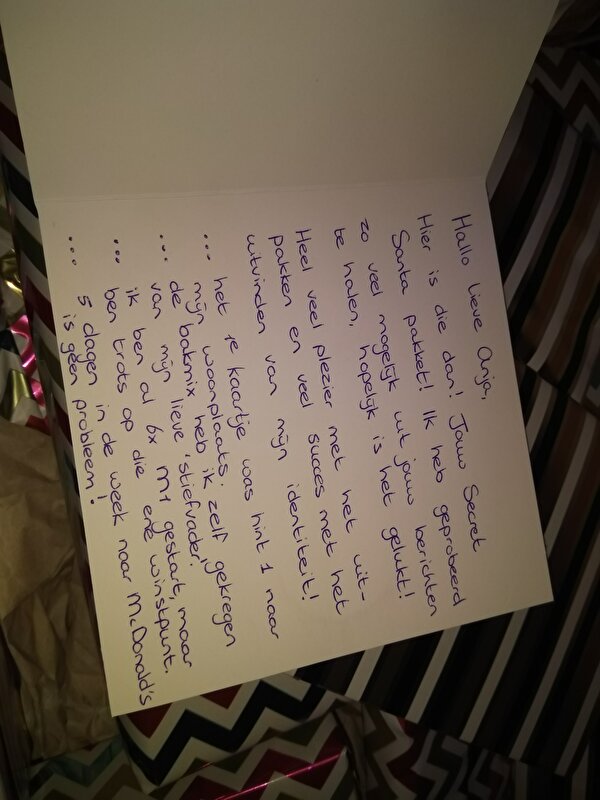 Hallo lieve Anja,
Hier is die dan! Jouw Secret
Santa pakket! Ik heb geprobeerd
zo veel mogelijk uit jouw berichten
te halen, hopelijk is het gelukt!
Heel veel plezier met het uit-
pakken en veel succes met het
uitvinden van mijn identiteit!
... het 1e kaartje was hint 1 naar
mijn woonplaats.
... de bakmix heb ik zelf gekregen
van mijn lieve 'stiefvader'
... ik ben al 6x M1 gestart, maar
ben trots op die ene winstpunt.
... 5 dagen in de week naar McDonald's
is géén probleem!